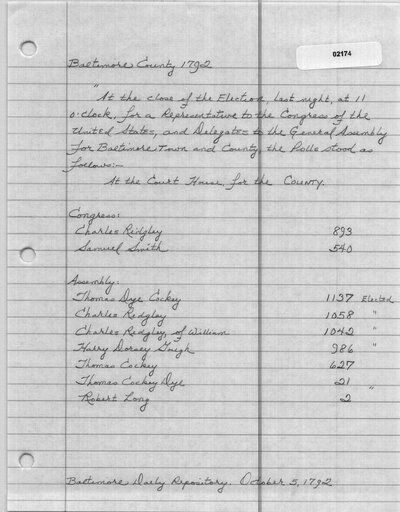 02174
Baltimore County 1792
"At the close of the Election, last night, at 11
o'clock, for a Representative to the Congress of the
United States, and Delegates to the General Assembly
for Baltimore Town and County the Polls stood as
follows:—
At the Court House, for the COUNTY.
Congress:
Charles Ridgley 893
Samuel Smith 540
Assembly:
Thomas Dye Cockey 1137 Elected
Charles Ridgley 1058 "
Charles Ridgley, of William 1042 "
Harry Dorsey Gough 986 "
Thomas Cockey 627
Thomas Cockey Dye 21 "
Robert Long 2
Baltimore Daily Repository. October 5, 1792